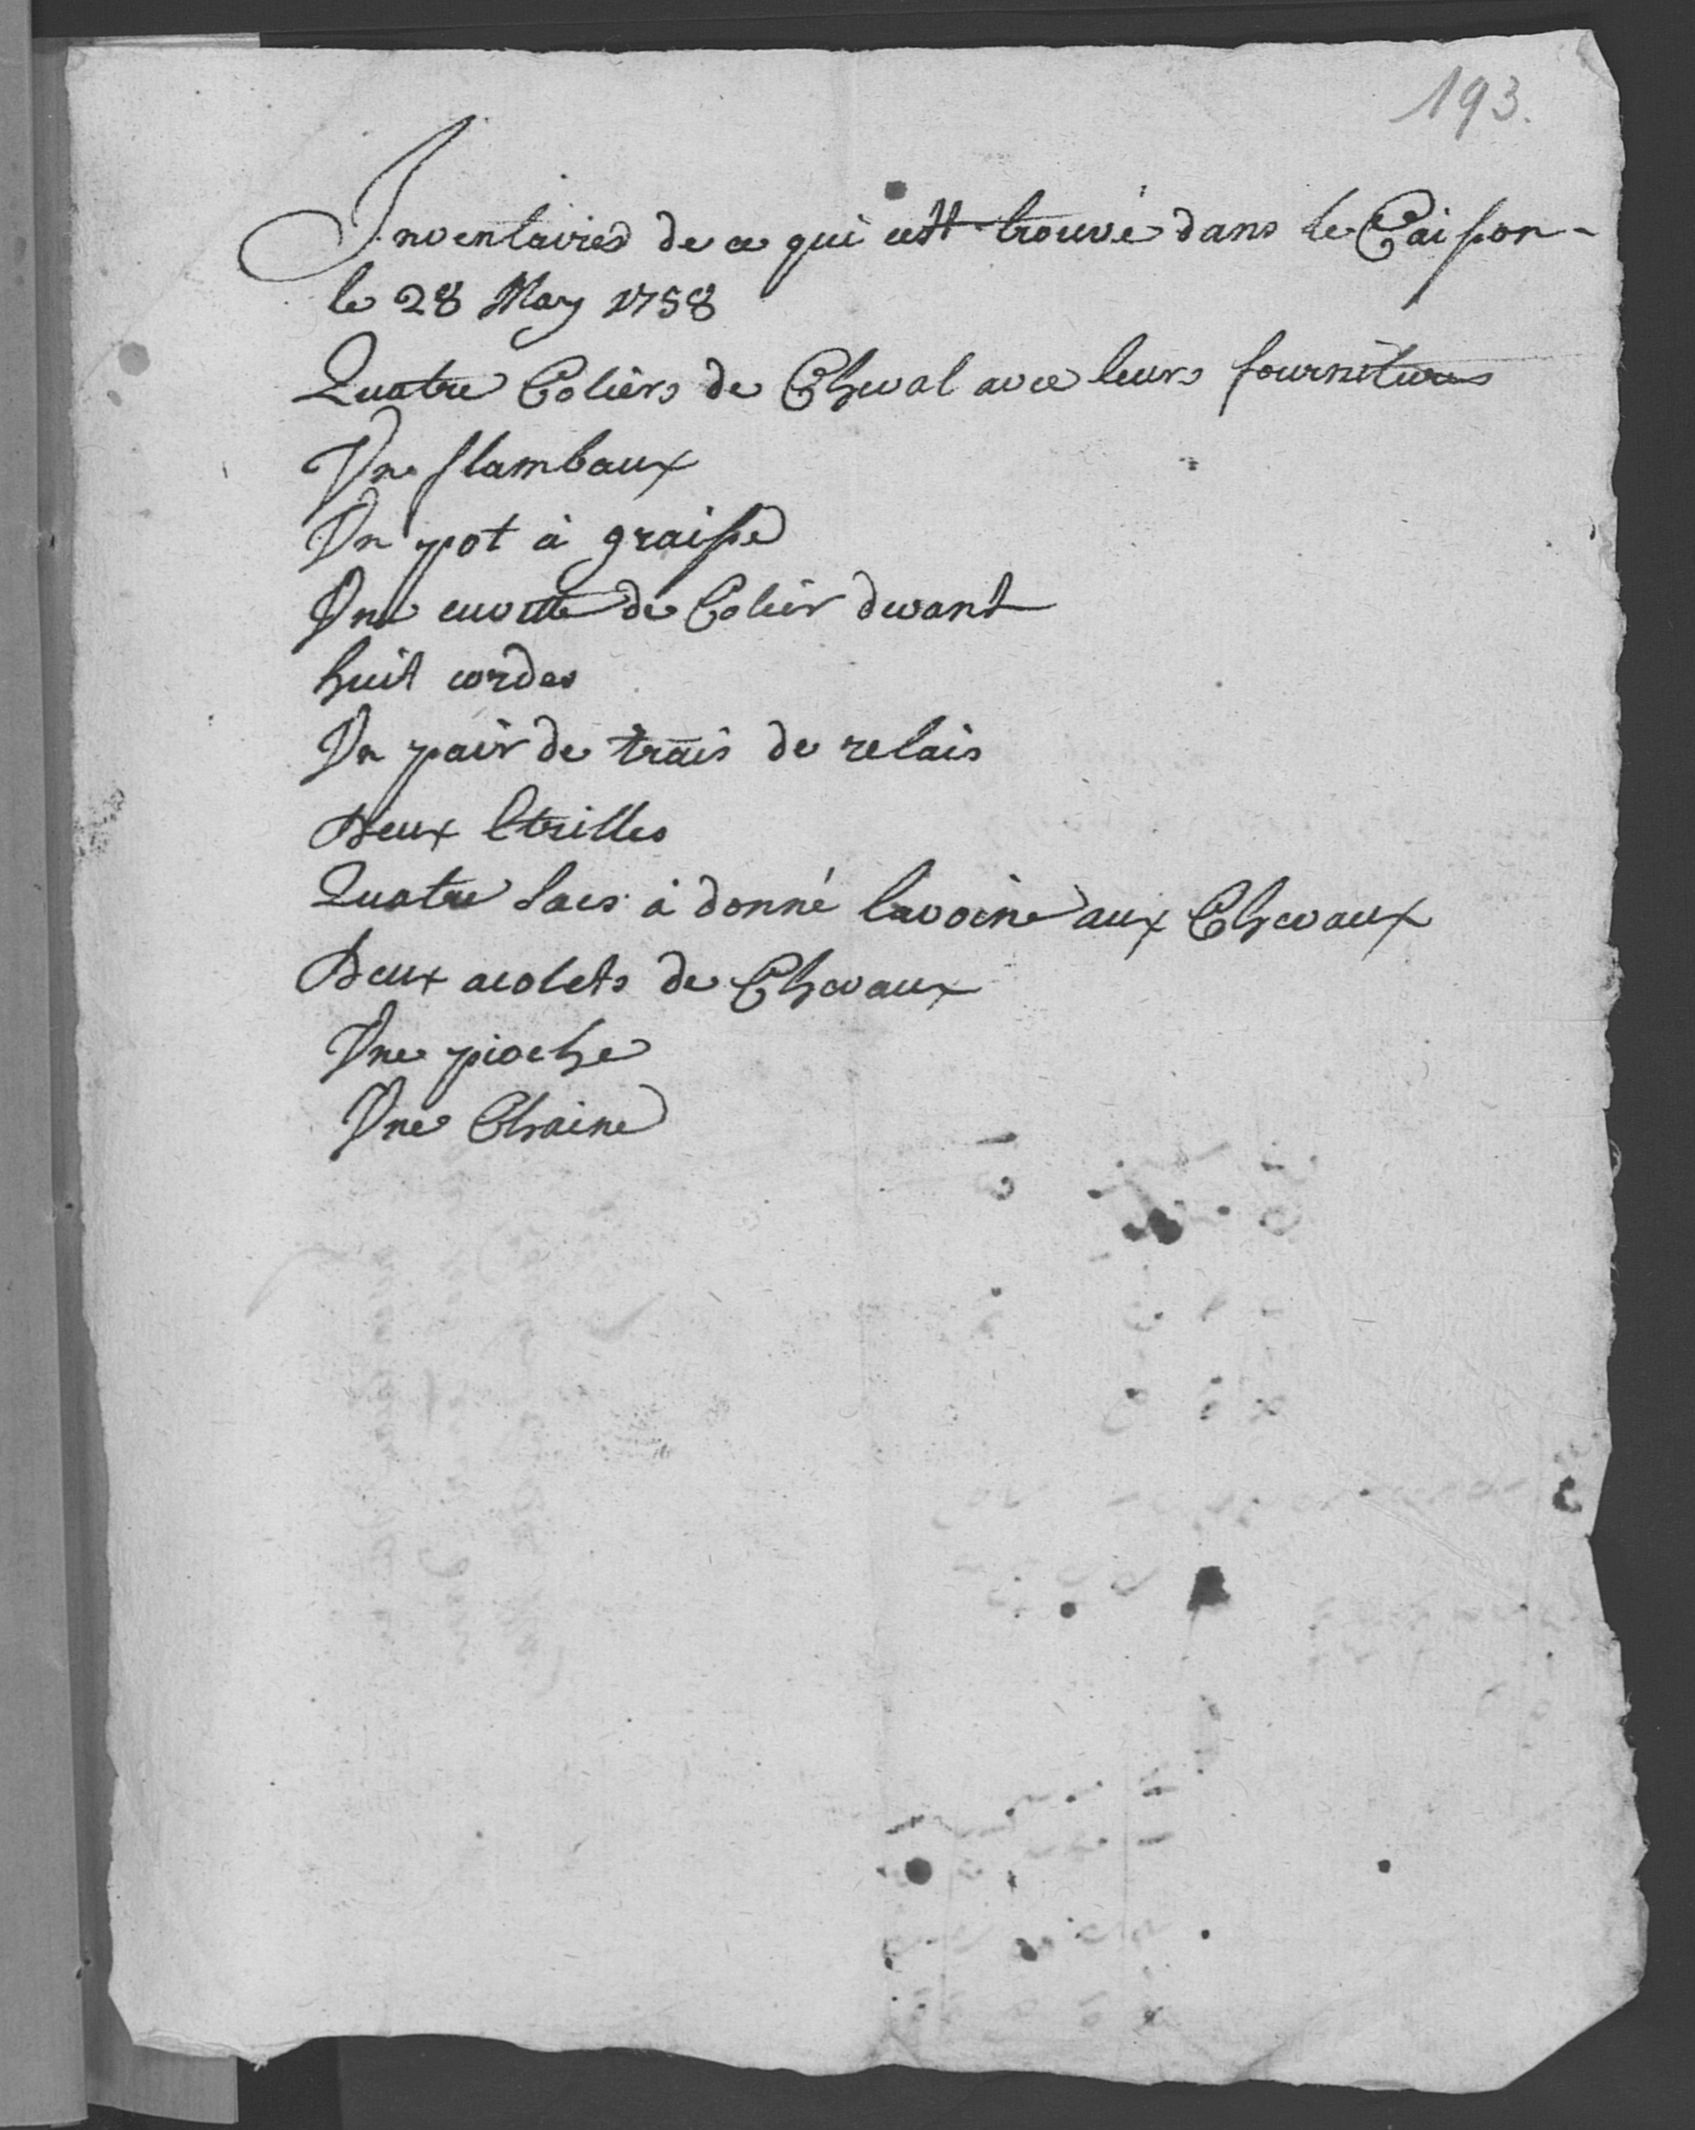 193.
Inventaires de ce qui cest trouvé dans le Caisson
le 28 May 1758
Quatre Coliers de Cheval avec leurs fournitures
Une flambaux
Un pot à graisse
Une cuvette de Colier devant
huit cordes
Un pair de trais de relais
Deux Etrilles
Quatre sacs à donné lavoine aux Chevaux
Deux acolets de Chevaux
Une pioche
Une Chaine